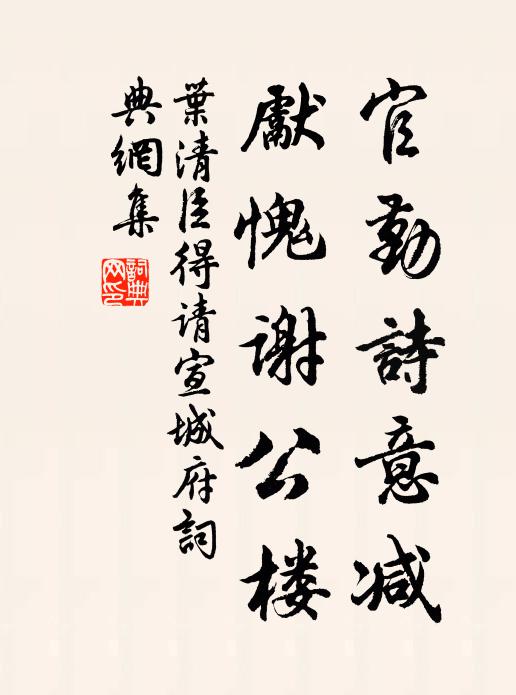 官勤詩意减
獻愧谢公楼
葉清臣得请宣城府詞
典網集
詞典
网印